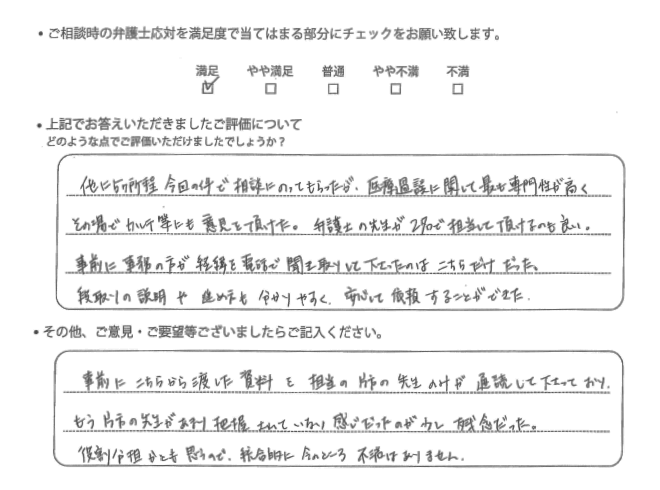 ・ご相談時の弁護士応対を満足度で当てはまる部分にチェックをお願い致します。
満足 やや満足 普通 やや不満 不満
・上記でお答えいただきましたご評価について
どのような点でご評価いただけましたでしょうか?
他に5カ所程 今回の件で相談にのってもらったが、医療過誤に関して最も専門性が高く
その場でカルテ等にも意見を頂けた。弁護士の先生が2名で担当して頂けるのも良い。
事前に事務の方が経緯を電話で聞き取りして下さったのはこちらだけだった。
段取りの説明や進め方も分かりやすく、安心して依頼することができた。
・その他、ご意見・ご要望等ございましたらご記入ください。
事前にこちらから渡した資料を担当の片方の先生だけが通読して下さっており、
もう片方の先生があまり把握されていない感じだったのが少し残念だった。
役割分担かとも思うので、総合的に今のところ不満はありません。